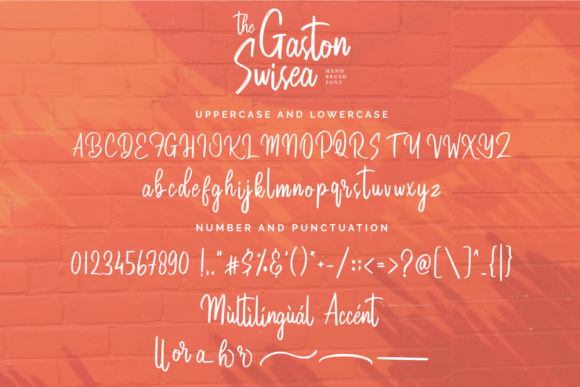 the Gaston
Swisea
HAND
BRUSH
FONT
UPPERCASE AND LOWERCASE
ABCDEFGHIJKLMNOPQRSTUVWXYZ
abcdefghijklmnopqrstuvwxyz
NUMBER AND PUNCTUATION
01234567890 !,."#$%&'()*+-/:;<=>?@[\]^_{|}
Mùltilíngùál Accént